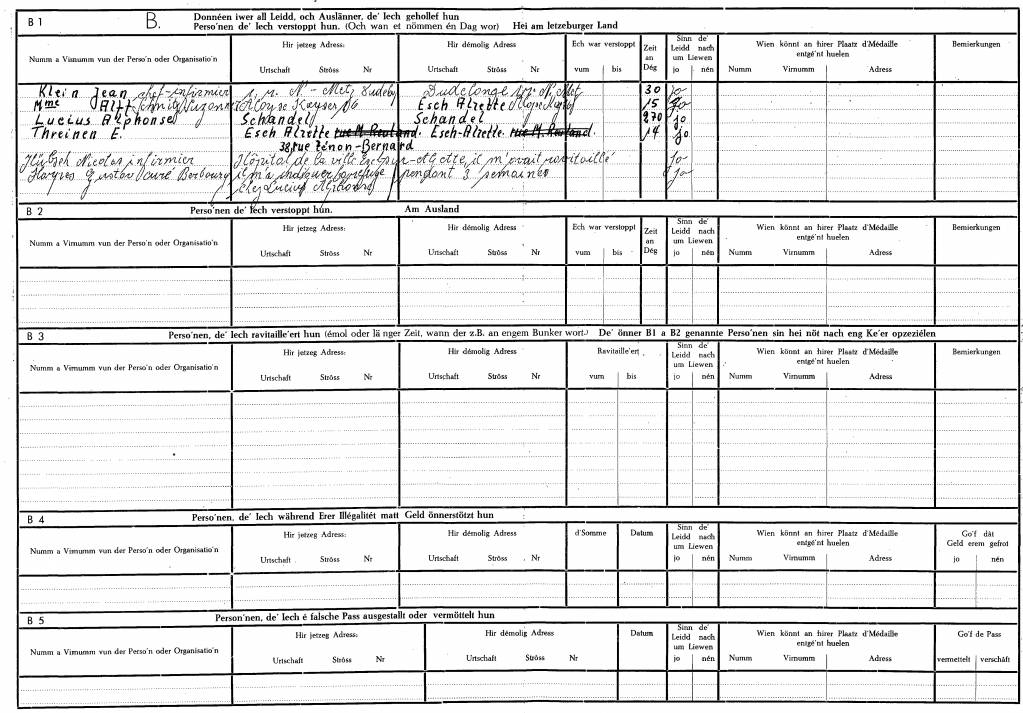 B 1 B. Donnéen iwer all Leidd, och Auslänner, de' Iech gehollef hun
Perso'nen de' Iech verstoppt hun. (Och wan et nömmen én Dag wor) Hei am letzeburger Land
Numm a Virnumm vun der Perso'n oder Organisatio'n Hir jetzeg Adress: Hir démolig Adress Ech war verstoppt Zeit an Dég Sinn de' Leidd nach um Liewen Wien könnt an hirer Plaatz d'Médaille entgé'nt huelen Bemierkungen
Urtschaft Ströss Nr Urtschaft Ströss Nr vum bis jo nén Numm Virnumm Adress
Klein Jean chef-infirmier r. N.-Metz Dudelange N. Metz 30 jo
Mme Altt Schmitz Suzanne Aloyse Kayser Esch Alzette 15 jo
Lucius Alphonse Schandel Schandel 270 jo
Threinen E. Esch Alzette rue M. Rouland. Esch-Alzette. rue M. Rouland. 14 jo
38, rue Zénon-Bernard
Nicolas infirmier Hôpital de la ville Esch-sur-Alzette, il m'avait ravitaillé jo
Gustav curé Berbourg il m'a indiqué refuge pendant 3 semaines jo
chez Lucius Alphonse
B 2 Perso'nen de' Iech verstoppt hun. Am Ausland
Numm a Virnumm vun der Perso'n oder Organisatio'n Hir jetzeg Adress: Hir démolig Adress Ech war verstoppt Zeit an Dég Sinn de' Leidd nach um Liewen Wien könnt an hirer Plaatz d'Médaille entgé'nt huelen Bemierkungen
Urtschaft Ströss Nr Urtschaft Ströss Nr vum bis jo nén Numm Virnumm Adress
B 3 Perso'nen, de' Iech ravitaille'ert hun (émol oder länger Zeit, wann der z.B. an engem Bunker wort.) De' önner B1 a B2 genannte Perso'nen sin hei nöt nach eng Ke'er opzeziélen
Numm a Virnumm vun der Perso'n oder Organisatio'n Hir jetzeg Adress: Hir démolig Adress Ravitaille'ert Sinn de' Leidd nach um Liewen Wien könnt an hirer Plaatz d'Médaille entgé'nt huelen Bemierkungen
Urtschaft Ströss Nr Urtschaft Ströss Nr vum bis jo nén Numm Virnumm Adress
B 4 Perso'nen, de' Iech während Erer Illégalitét matt Geld önnerstötzt hun
Numm a Virnumm vun der Perso'n oder Organisatio'n Hir jetzeg Adress: Hir démolig Adress d'Somme Datum Sinn de' Leidd nach um Liewen Wien könnt an hirer Plaatz d'Médaille entgé'nt huelen Go'f dât Geld erem gefrot
Urtschaft Ströss Nr Urtschaft Ströss Nr jo nén Numm Virnumm Adress jo nén
B 5 Person'nen, de' Iech é falsche Pass ausgestallt oder vermöttelt hun
Numm a Virnumm vun der Perso'n oder Organisatio'n Hir jetzeg Adress: Hir démolig Adress Datum Sinn de' Leidd nach um Liewen Wien könnt an hirer Plaatz d'Médaille entgé'nt huelen Go'f de Pass
Urtschaft Ströss Nr Urtschaft Ströss Nr jo nén Numm Virnumm Adress vermettelt verschâft